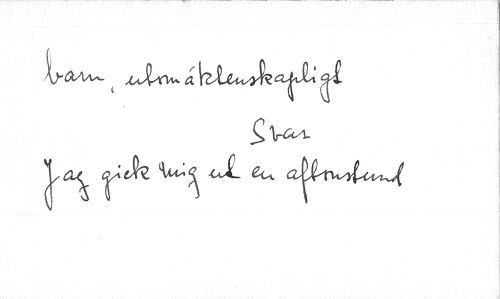 barn, utomäktenskapligt
Svar
Jag gick mig ut en aftonstund